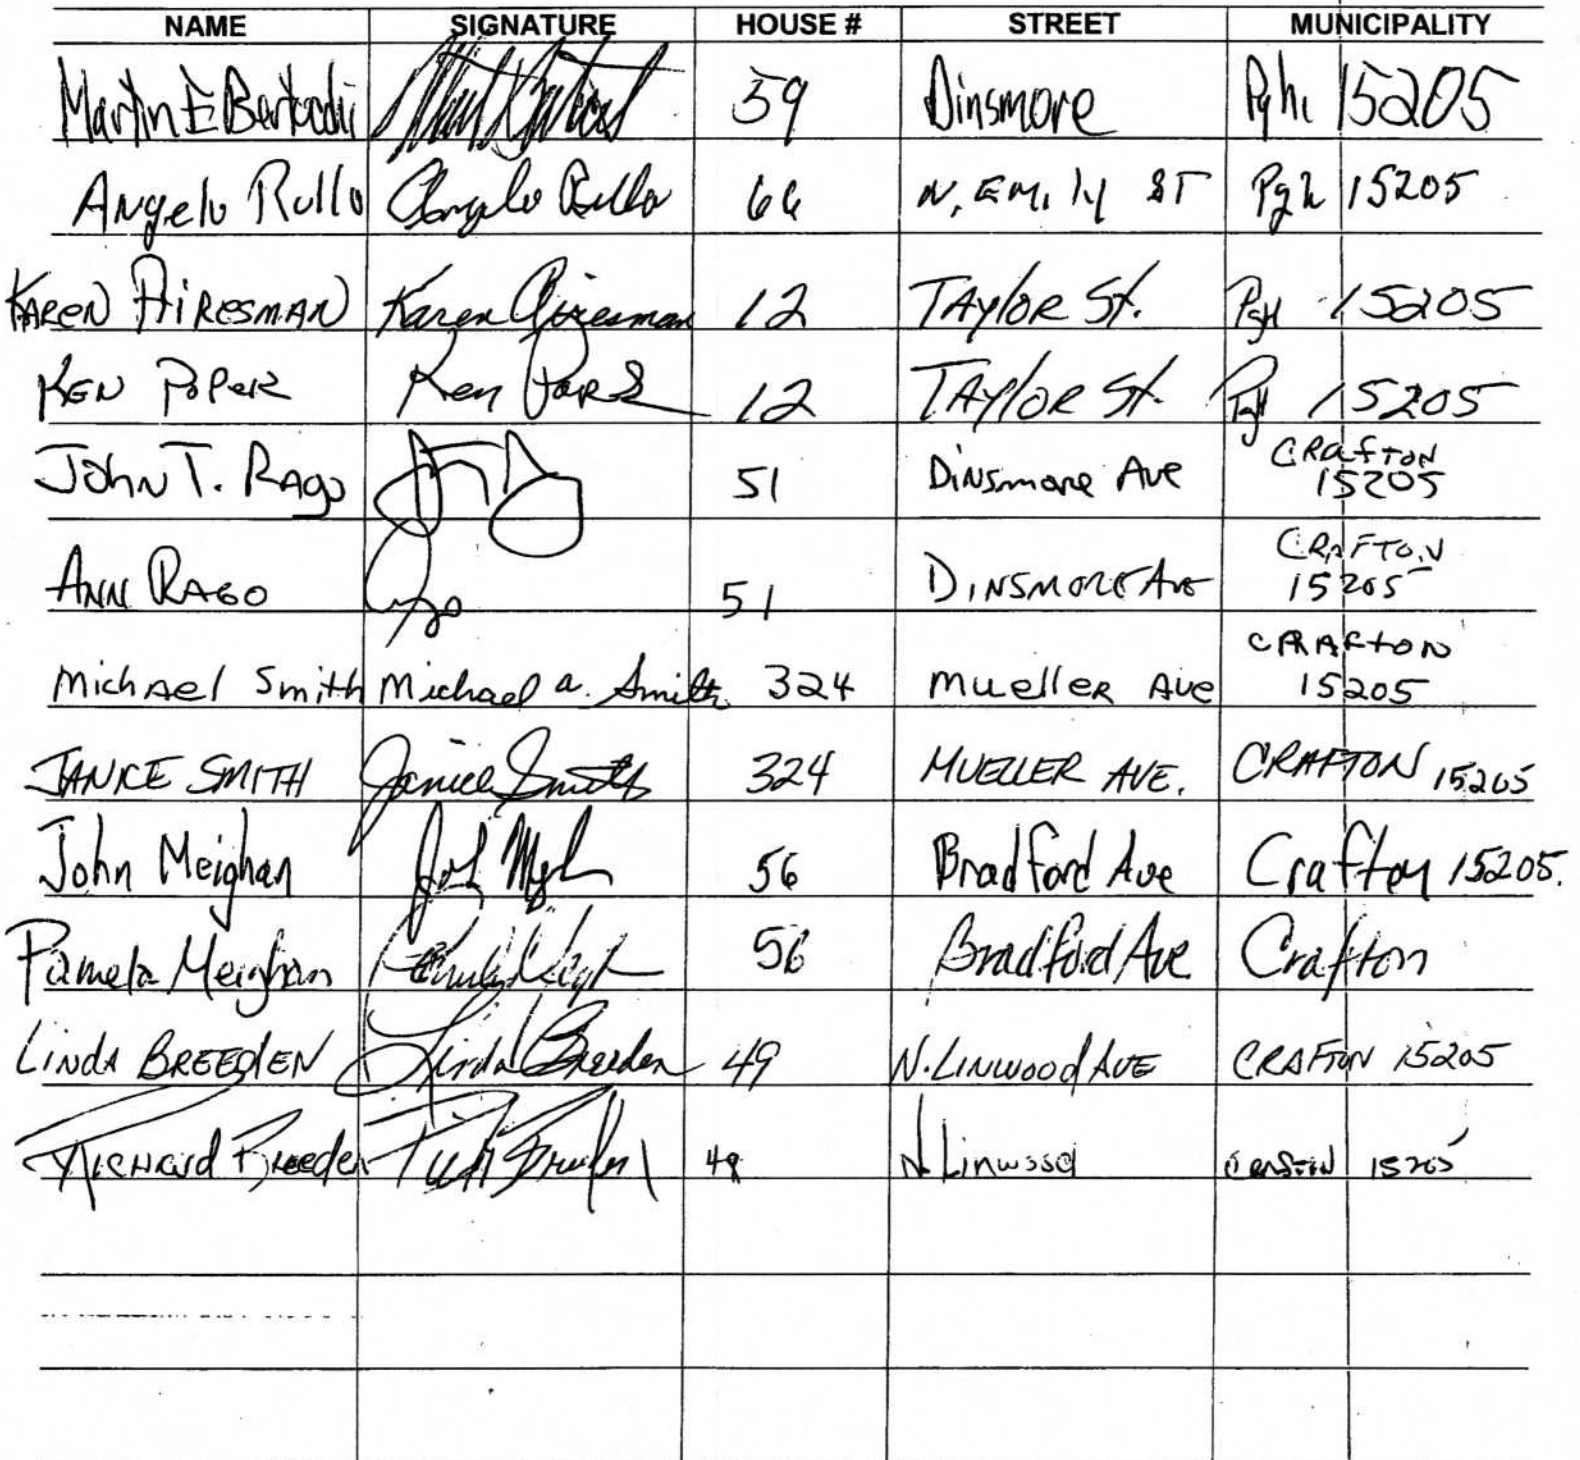 NAME SIGNATURE HOUSE # STREET MUNICIPALITY
Martin E 39 Dinsmore Pgh. 15205
Angelo Rullo Angelo Rullo 66 N. Emily ST Pgh 15205
KAREN AIRESMAN Karen Airesman 12 TAYloR St. PgH 15205
KEN PoPeR Ken 12 TAYloR St. PgH 15205
John T. Rago 51 Dinsmore Ave CRafTON
15205
ANN RAGO 51 DINSMORE Ave CRAFTON
15205
Michael Smith Michael a. Smith 324 Mueller Ave CRAFtoN
15205
JANICE SMITH Janice Smith 324 MUELLER AVE. CRAFTON 15205
John Meighan 56 Bradford Ave Crafton 15205.
Pamela Meighan 56 Bradford Ave Crafton
LINDA BREEDEN Linda Breeden 49 N. LINWOOD AVE CRAFTON 15205
Richard Breeden 49 N Linwood 15205